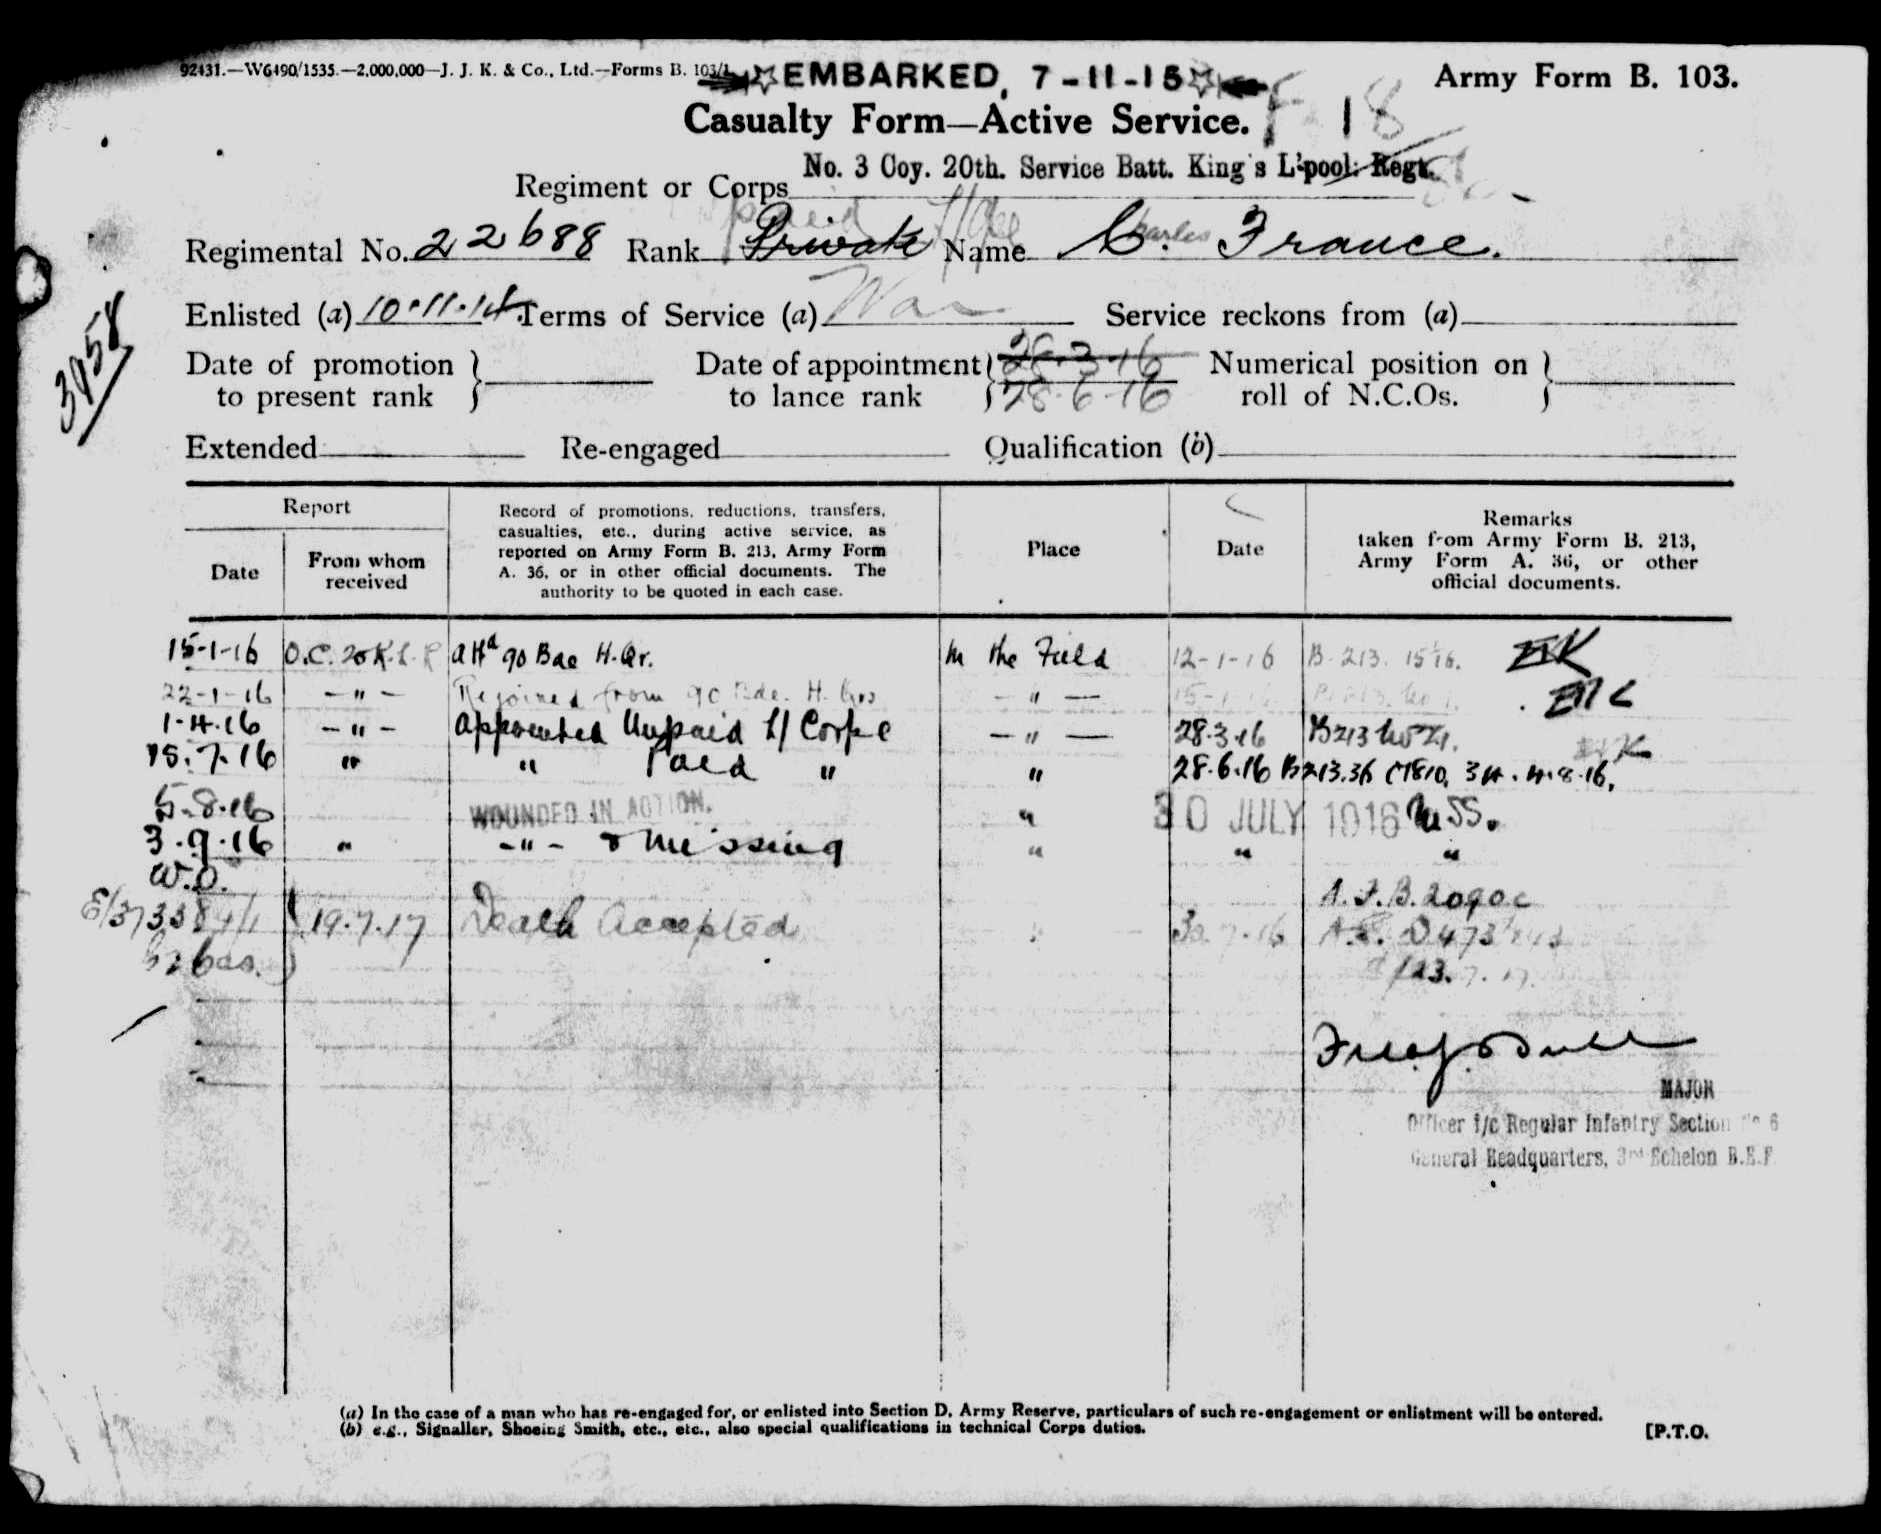 92431.—W6490/1535.—2,000,000—J. J. K. & Co., Ltd.—Forms B. 103/1.
EMBARKED, 7-11-15
Army Form B. 103.
Casualty Form—Active Service.
18
Regiment or Corps No. 3 Coy. 20th. Service Batt. King's L'pool: Regt.
paid L/Cpl
Regimental No. 22688 Rank Private Name C. Charles France.
Enlisted (a) 10.11.14. Terms of Service (a) War Service reckons from (a)
3958
Date of promotion to present rank
Date of appointment to lance rank 28.3.16 28.6.16
Numerical position on roll of N.C.Os.
Extended Re-engaged Qualification (b)
Report
Date
From whom received
Record of promotions, reductions, transfers, casualties, etc., during active service, as reported on Army Form B. 213, Army Form A. 36, or in other official documents. The authority to be quoted in each case.
Place
Date
Remarks taken from Army Form B. 213, Army Form A. 36, or other official documents.
15-1-16 O.C. 20 K.L.R attd 90 Bde H.Qr. In the Field 12-1-16 B. 213.
22-1-16 —"— Rejoined from 90 Bde. H. Qrs —"— 15-1-16
1.4.16 —"— appointed Unpaid L/Corpl —"— 28.3.16 B213
15.7.16 " " Paid " " 28.6.16 B213.36 4.8.16.
5.8.16 WOUNDED IN ACTION. " 30 JULY 1916
3.9.16 " —"— & missing " " "
W.O.
19.7.17 Death Accepted 30.7.16
A.F.B. 2090c
MAJOR
Officer i/c Regular Infantry Section No 6
General Headquarters, 3rd Echelon B.E.F
(a) In the case of a man who has re-engaged for, or enlisted into Section D, Army Reserve, particulars of such re-engagement or enlistment will be entered.
(b) e.g., Signaller, Shoeing Smith, etc., etc., also special qualifications in technical Corps duties.
[P.T.O.